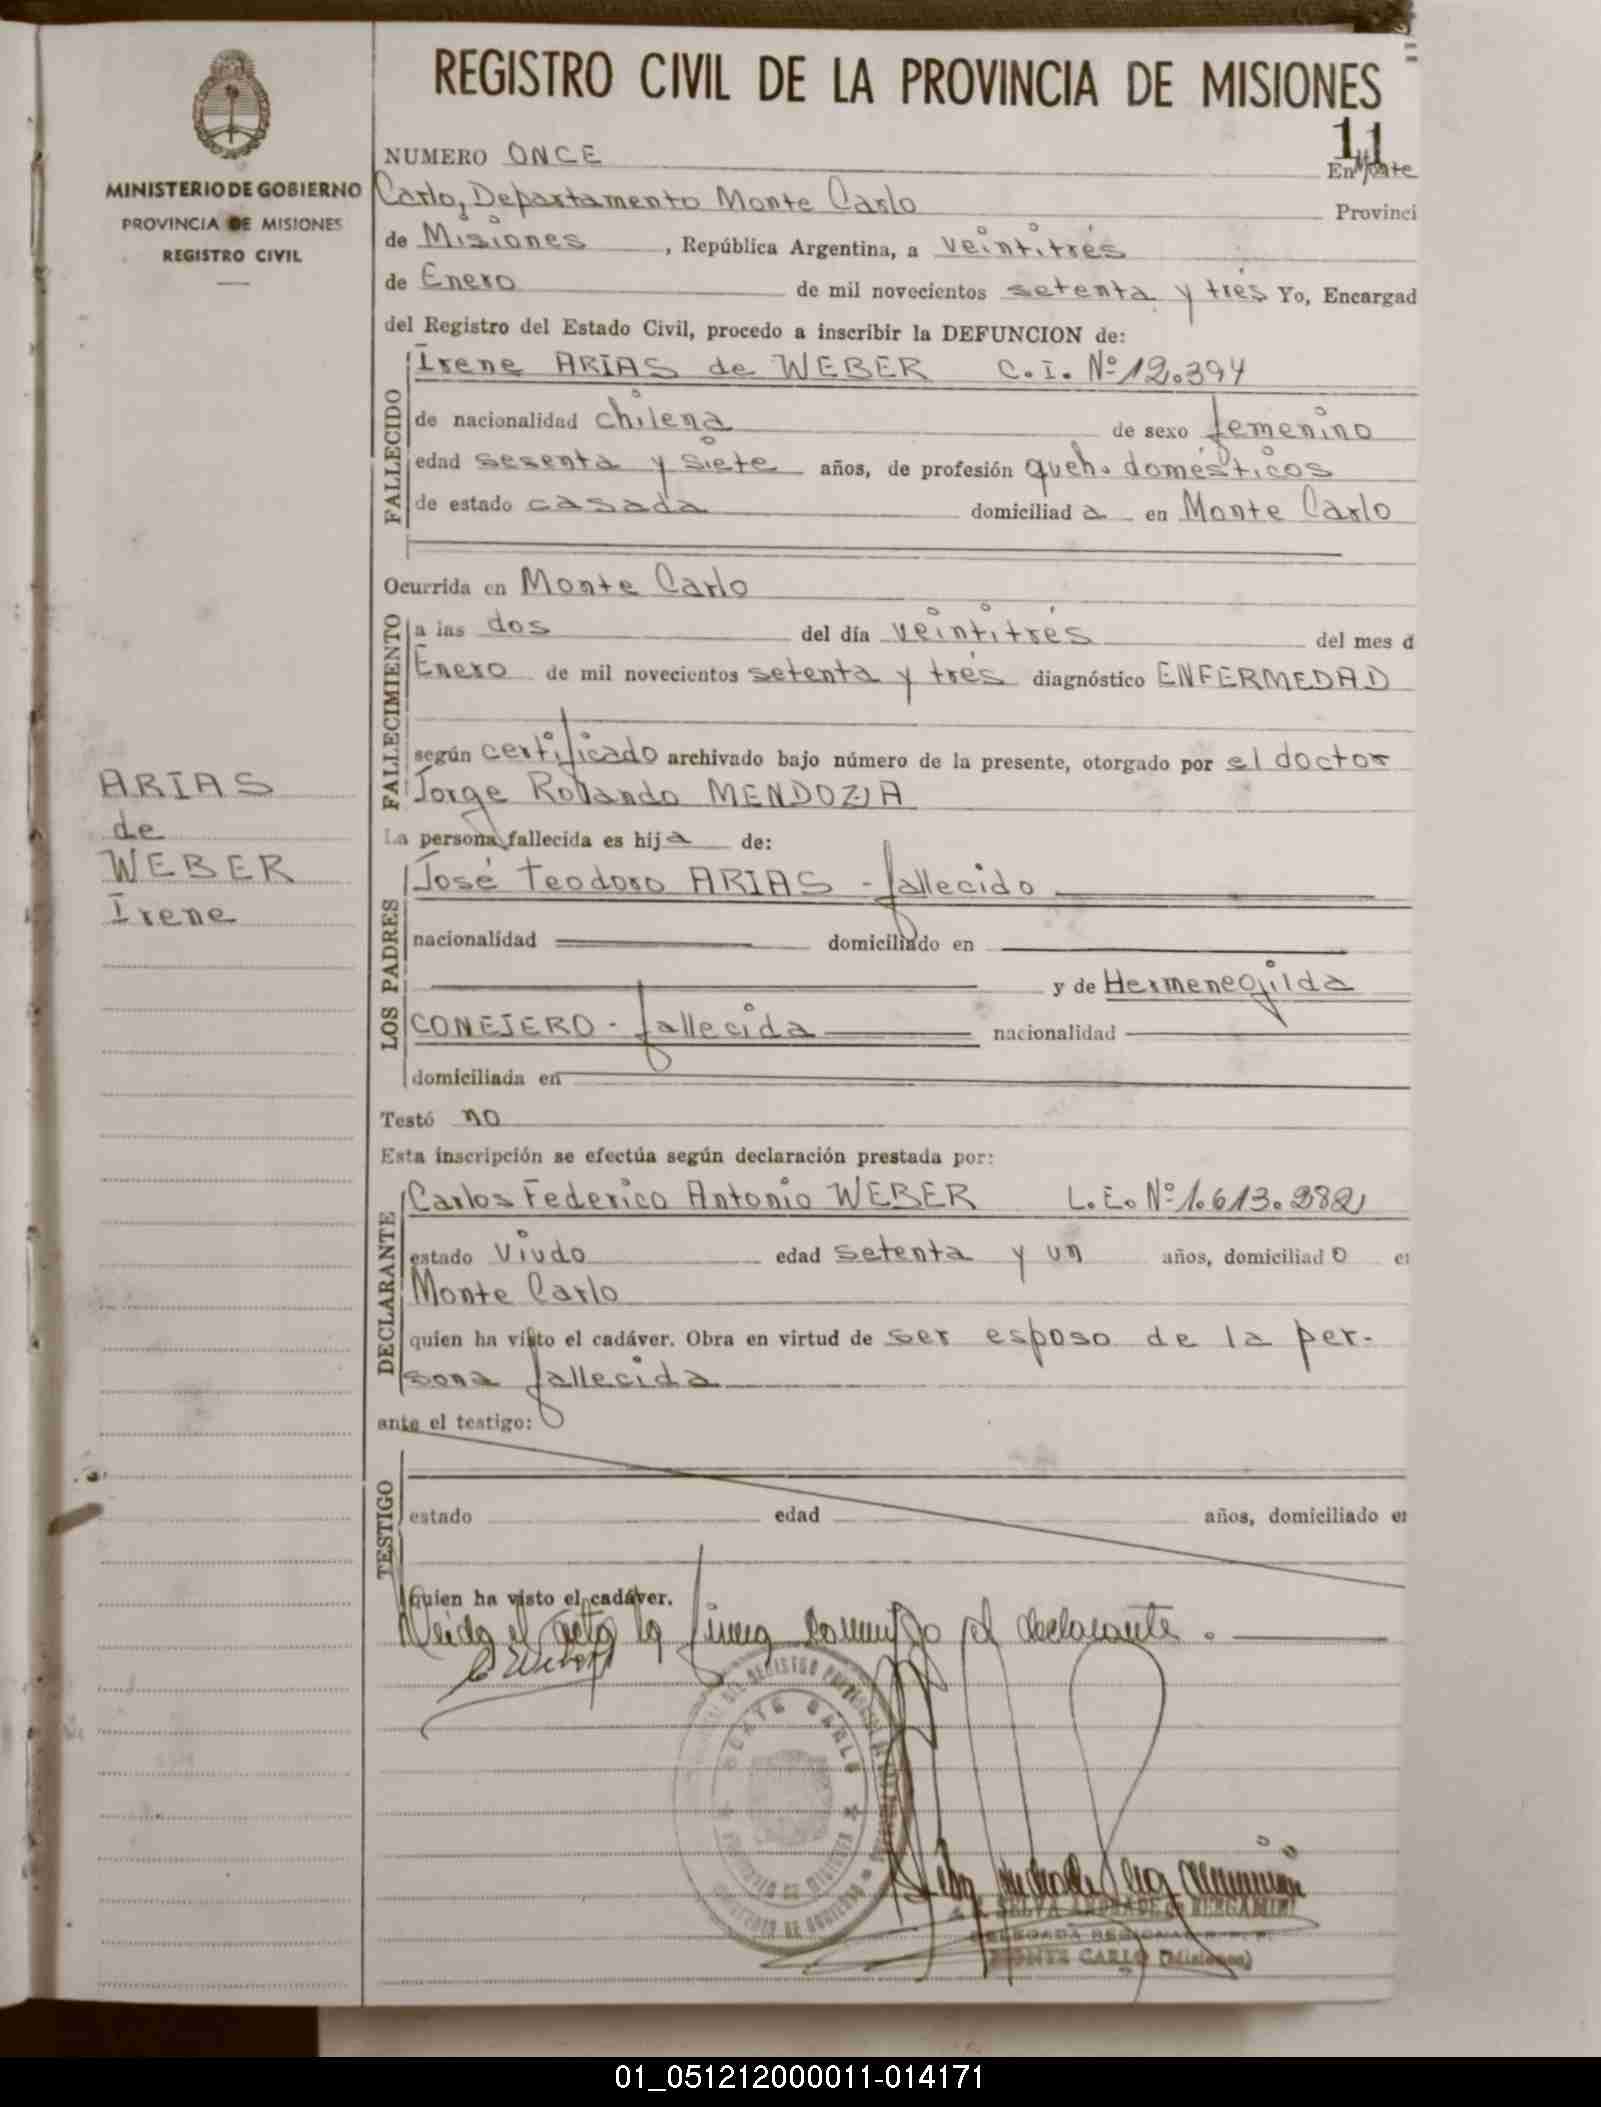 REGISTRO CIVIL DE LA PROVINCIA DE MISIONES
MINISTERIO DE GOBIERNO
PROVINCIA DE MISIONES
REGISTRO CIVIL
11
NUMERO ONCE En Monte
Carlo, Departamento Monte Carlo Provinci
de Misiones, República Argentina, a veintitrés
de Enero de mil novecientos setenta y trés Yo, Encargad
del Registro del Estado Civil, procedo a inscribir la DEFUNCION de:
FALLECIDO
Irene ARIAS de WEBER C.I. Nº 12.394
de nacionalidad chilena de sexo femenino
edad sesenta y siete años, de profesión queh. domésticos
de estado casada domiciliad a en Monte Carlo
Ocurrida en Monte Carlo
FALLECIMIENTO
a las dos del día veintitrés del mes d
Enero de mil novecientos setenta y trés diagnóstico ENFERMEDAD
según certificado archivado bajo número de la presente, otorgado por el doctor
Jorge Rolando MENDOZA
ARIAS
de
WEBER
Irene
La persona fallecida es hija de:
LOS PADRES
José Teodoro ARIAS - fallecido
nacionalidad domiciliado en
y de Hermenegilda
CONEJERO - fallecida nacionalidad
domiciliada en
Testó no
Esta inscripción se efectúa según declaración prestada por:
DECLARANTE
Carlos Federico Antonio WEBER L.E. Nº 1.613.382
estado Viudo edad setenta y un años, domiciliad o e
Monte Carlo
quien ha visto el cadáver. Obra en virtud de ser esposo de la per-
sona fallecida
ante el testigo:
TESTIGO
estado edad años, domiciliado e
Quien ha visto el cadáver.
Leida el acta la firma conmigo el declarante.
C Weber
MONTE CARLO
SELVA ANDRADE de BERGAMINI
DELEGADA REGIONAL
MONTE CARLO (Misiones)
01_051212000011-014171